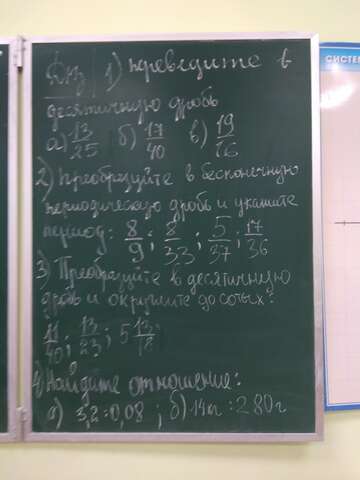 СИСТЕМ
Д/з 1) переведите в
десятичную дробь
а) 13/25 б) 17/40 в) 19/16
2) Преобразуйте в бесконечную
периодическую дробь и укажите
период: 8/9; 8/33; 5/37; 17/36
3) Преобразуйте в десятичную
дробь и округлите до сотых:
11/40; 13/23; 5 13/18
4) Найдите отношение:
а) 3,2:0,08; б) 14кг:280г